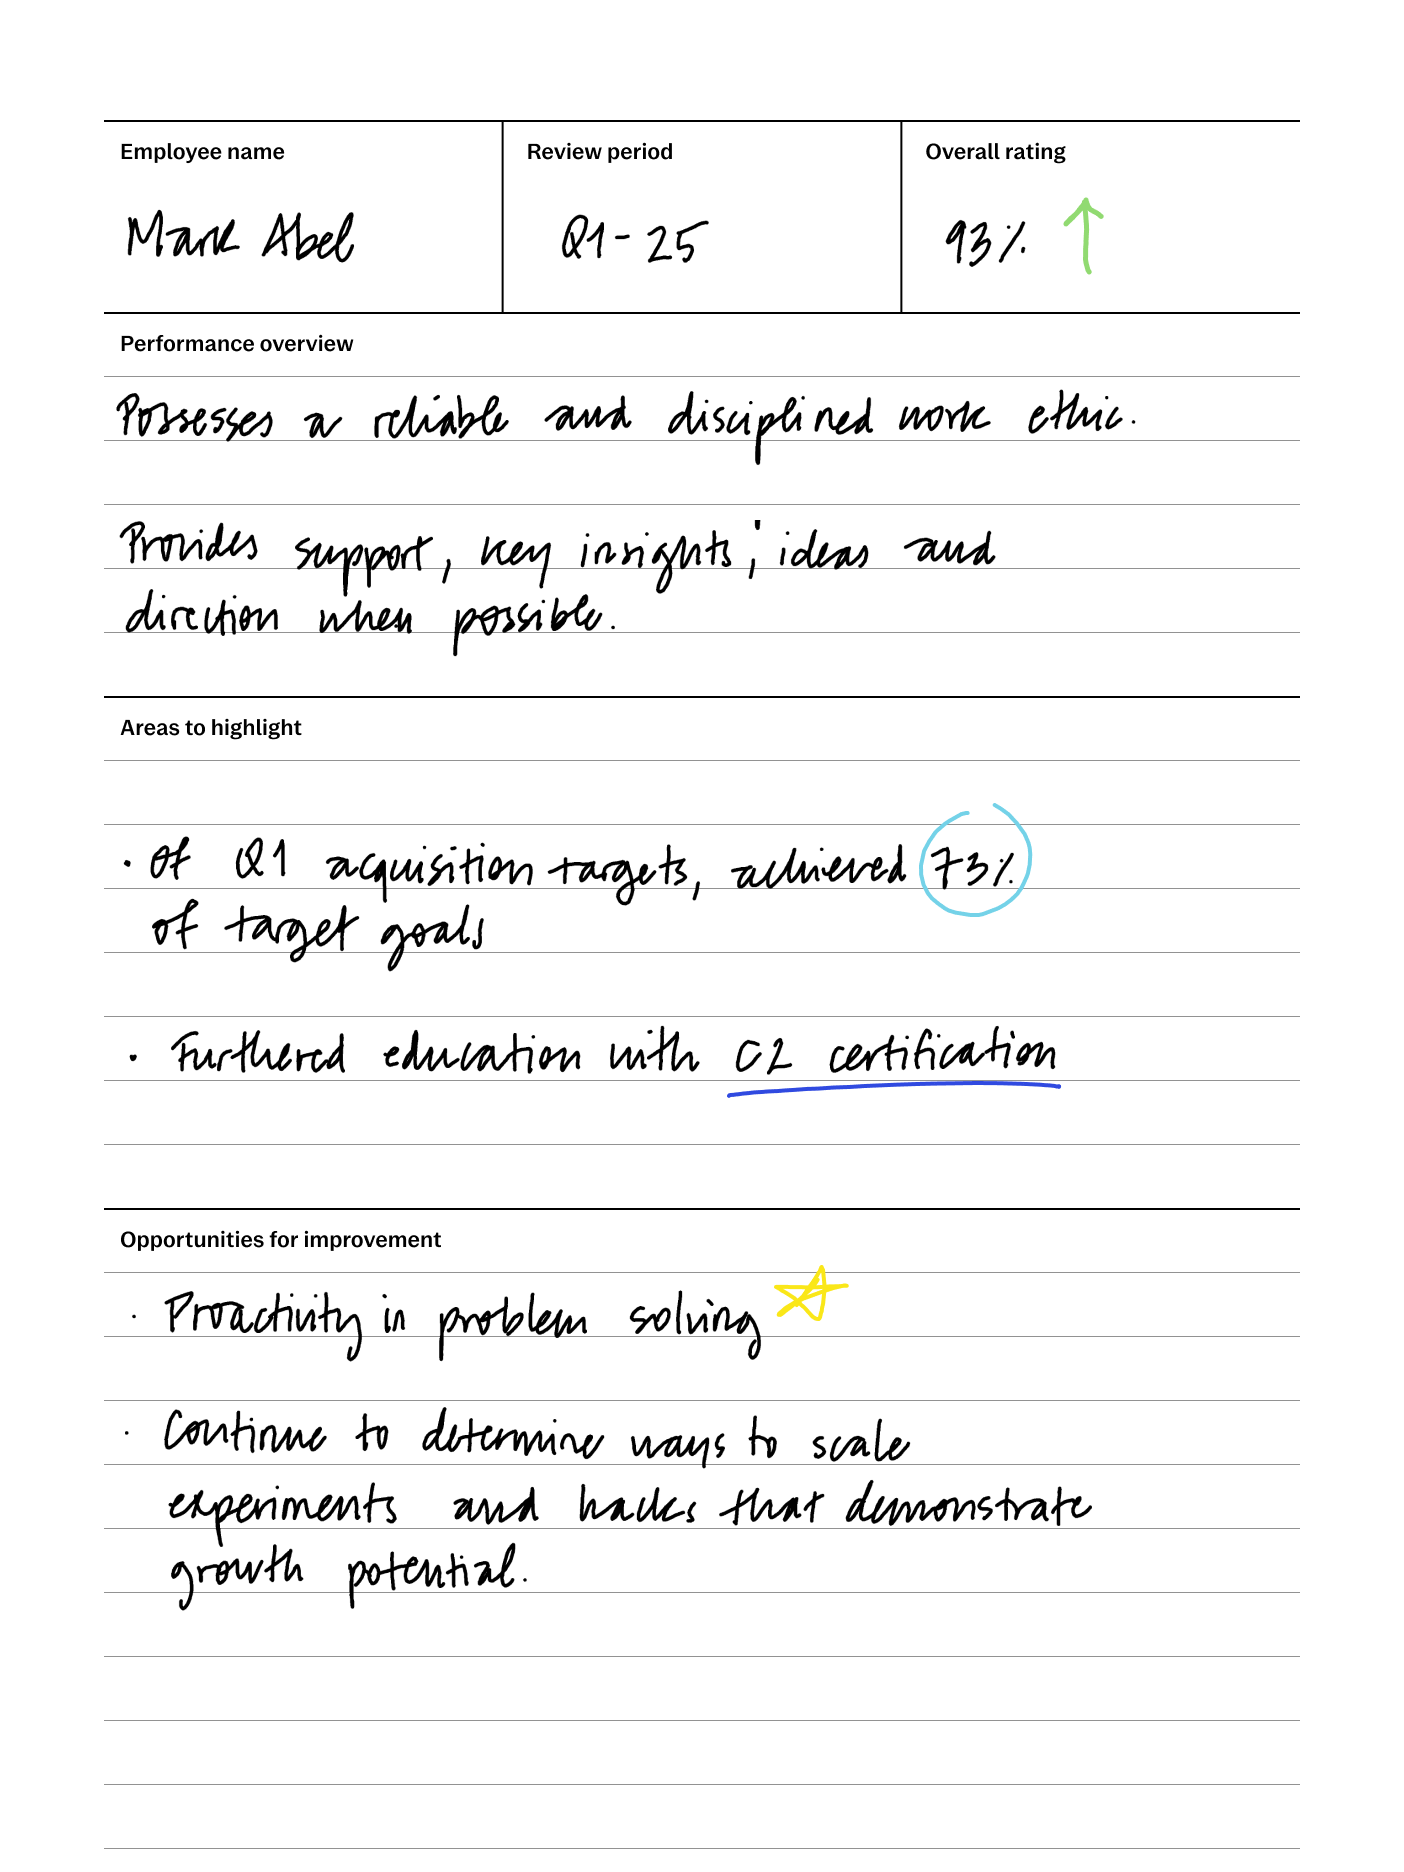 Employee name
Review period
Overall rating
Mark Abel
Q1-25
93%
Performance overview
Possesses a reliable and disciplined work ethic.
Provides support, key insights, ideas and
direction when possible.
Areas to highlight
• Of Q1 acquisition targets, achieved 73%
of target goals
• Furthered education with C2 certification
Opportunities for improvement
• Proactivity in problem solving
• Continue to determine ways to scale
experiments and hacks that demonstrate
growth potential.